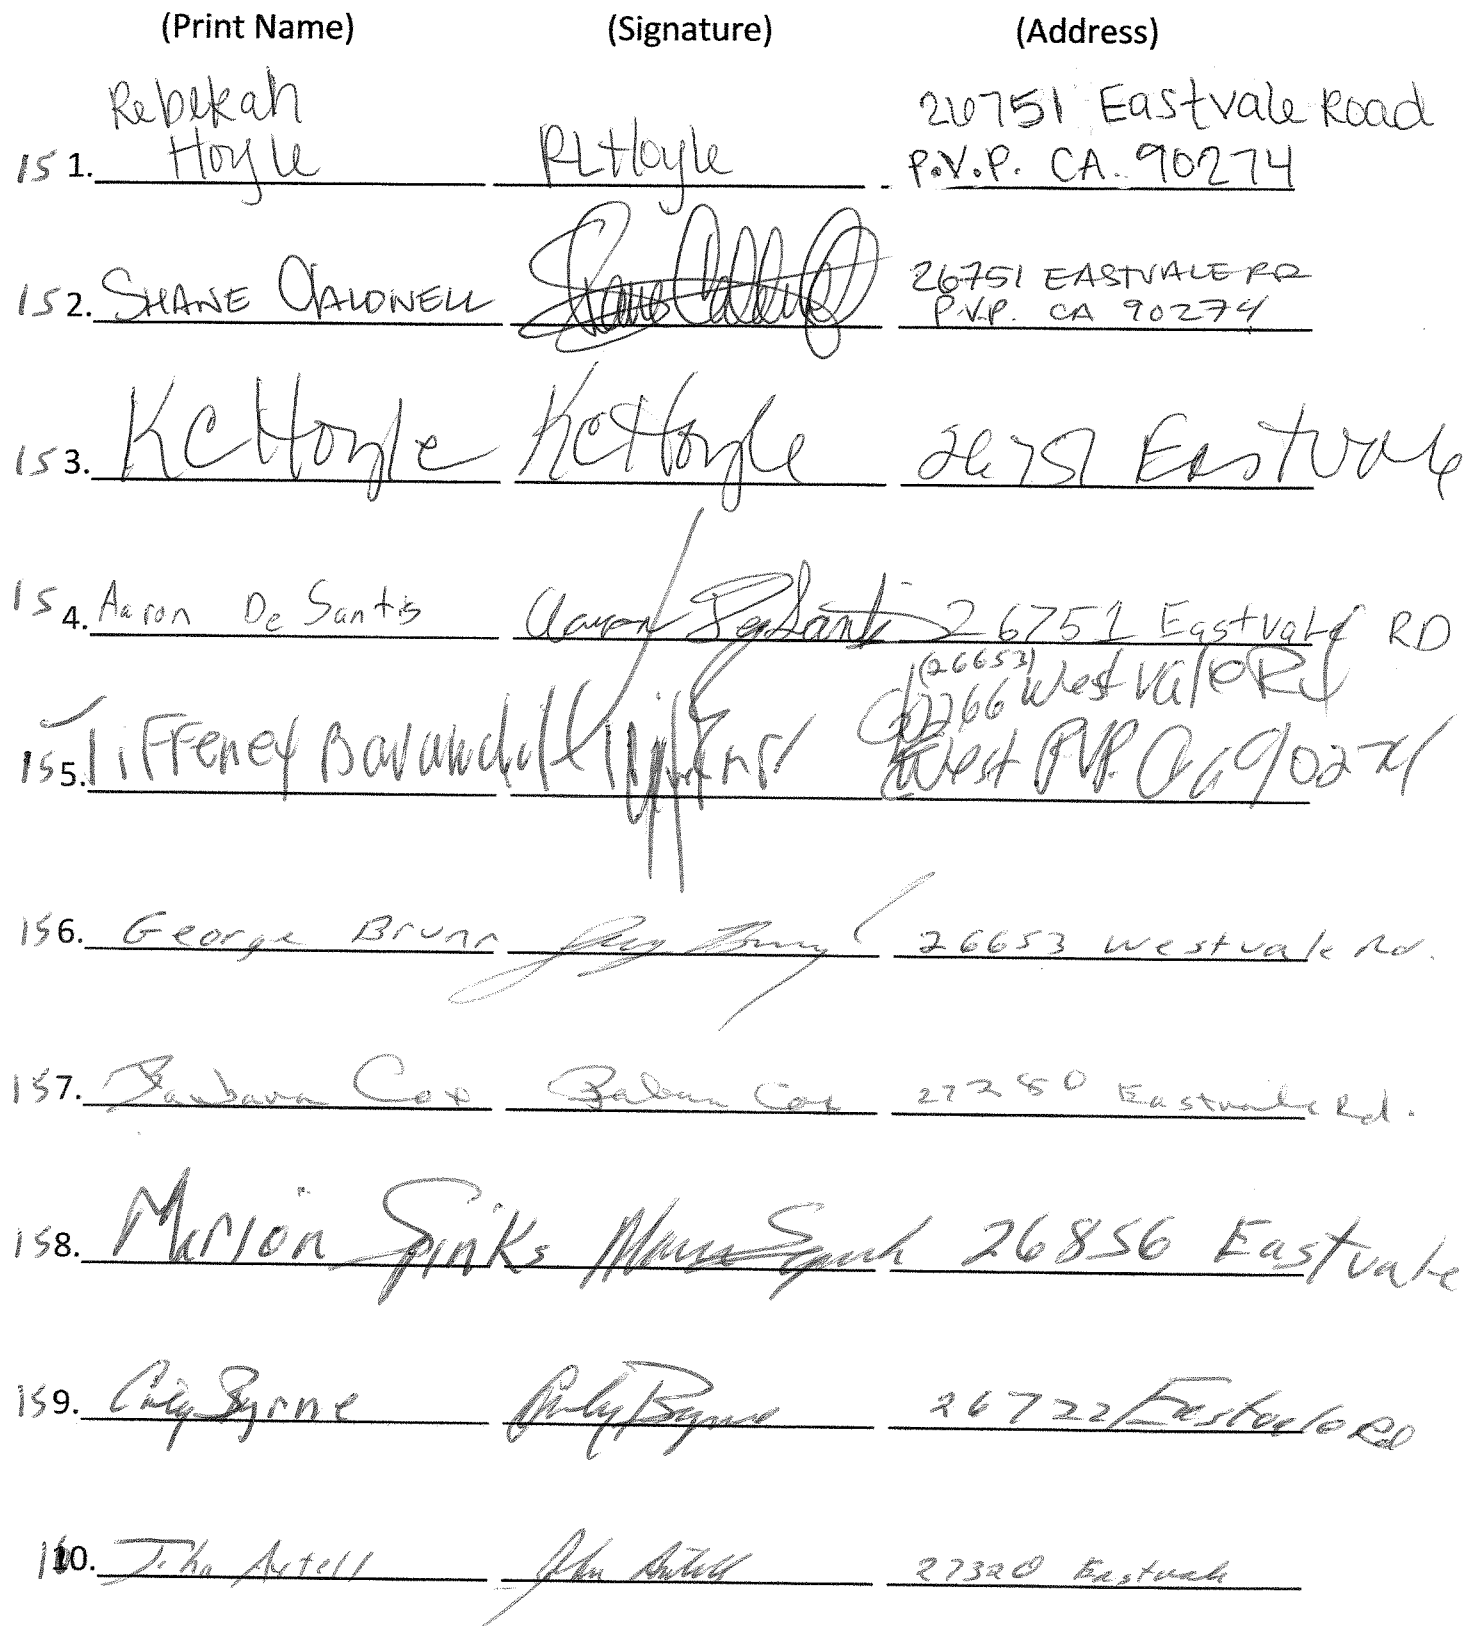 (Print Name) (Signature) (Address)
Rebekah 26751 Eastvale Road
151. Hoyle RLHoyle P.V.P. CA. 90274
152. SHANE CALDWELL Shane Caldwell 26751 EASTVALE RD
P.V.P. CA 90274
153. KC Hoyle KC Hoyle 26751 Eastvale
154. Aaron De Santis Aaron DeSantis 26751 Eastvale RD
(26653)
Westvale Rd
155. Tiffeney West P.V.P. Ca 90274
156. George Brunn 26653 Westvale Rd.
157. Barbara Cox Barbara Cox 27250 Eastvale Rd.
158. Marion Spinks Marion Spinks 26856 Eastvale
159. Byrne Byrne 26722 Eastvale Rd
10. John Axtell John Axtell 27320 Eastvale